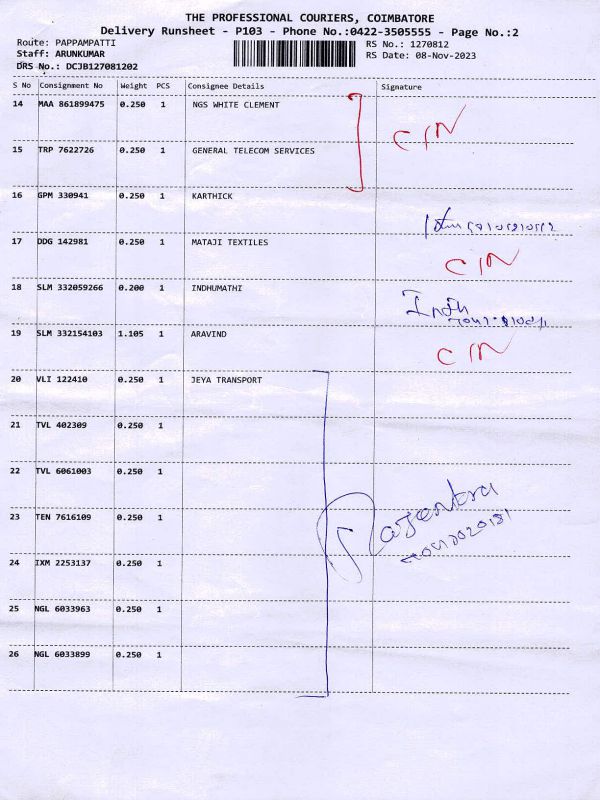 THE PROFESSIONAL COURIERS, COIMBATORE
Delivery Runsheet - P103 - Phone No.:0422-3505555 - Page No.:2
Route: PAPPAMPATTI RS No.: 1270812
Staff: ARUNKUMAR RS Date: 08-Nov-2023
DRS No.: DCJB127081202
S No Consignment No Weight PCS Consignee Details Signature
14 MAA 861899475 0.250 1 NGS WHITE CLEMENT
C/N
15 TRP 7622726 0.250 1 GENERAL TELECOM SERVICES
16 GPM 330941 0.250 1 KARTHICK
17 DDG 142981 0.250 1 MATAJI TEXTILES
C/N
18 SLM 332059266 0.200 1 INDHUMATHI
Indh
19 SLM 332154103 1.105 1 ARAVIND
C/N
20 VLI 122410 0.250 1 JEYA TRANSPORT
21 TVL 402309 0.250 1
22 TVL 6061003 0.250 1
Rajentra
23 TEN 7616109 0.250 1
24 IXM 2253137 0.250 1
25 NGL 6033963 0.250 1
26 NGL 6033899 0.250 1